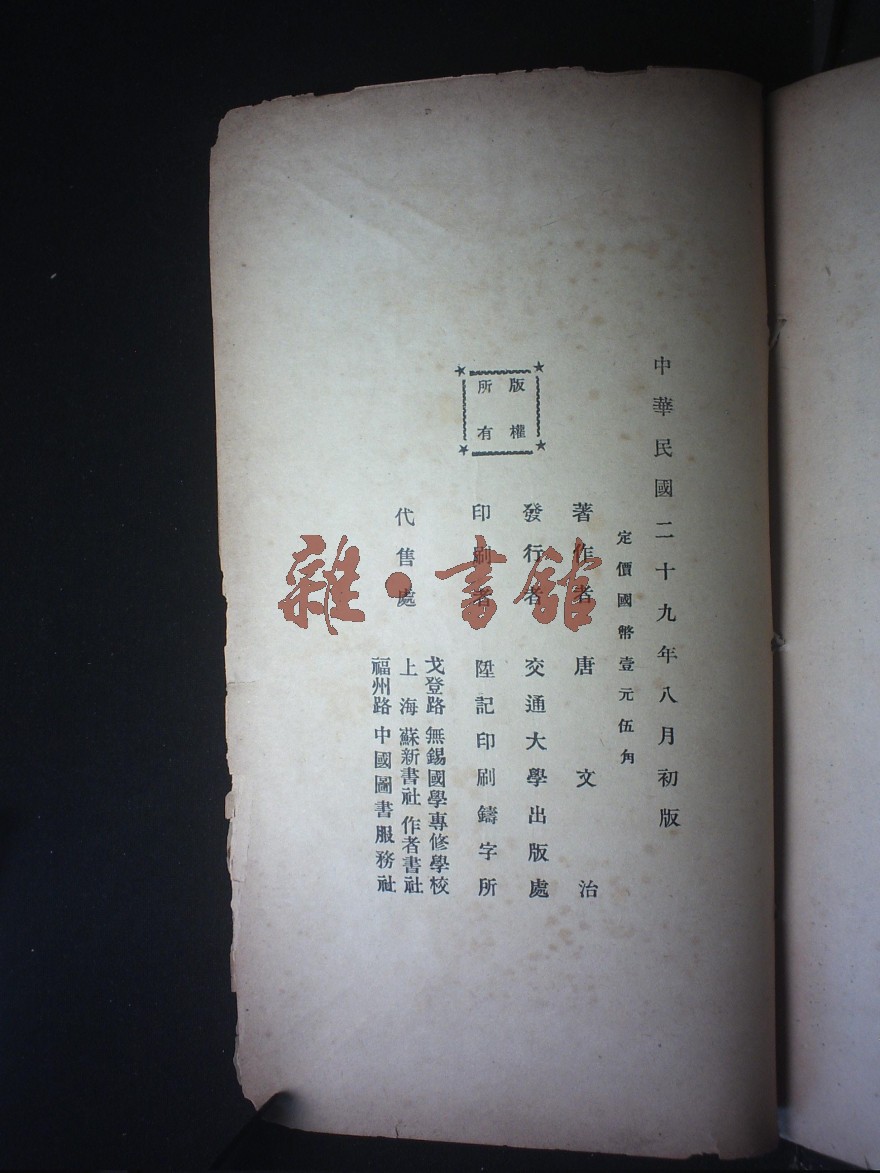 中華民國二十九年八月初版
定價國幣壹元伍角
版權
所有
著作者 唐文治
發行者 交通大學出版處
印刷者 陞記印刷鑄字所
代售處
戈登路 無錫國學專修學校
上海 蘇新書社 作者書社
福州路 中國圖書服務社
雜·書館